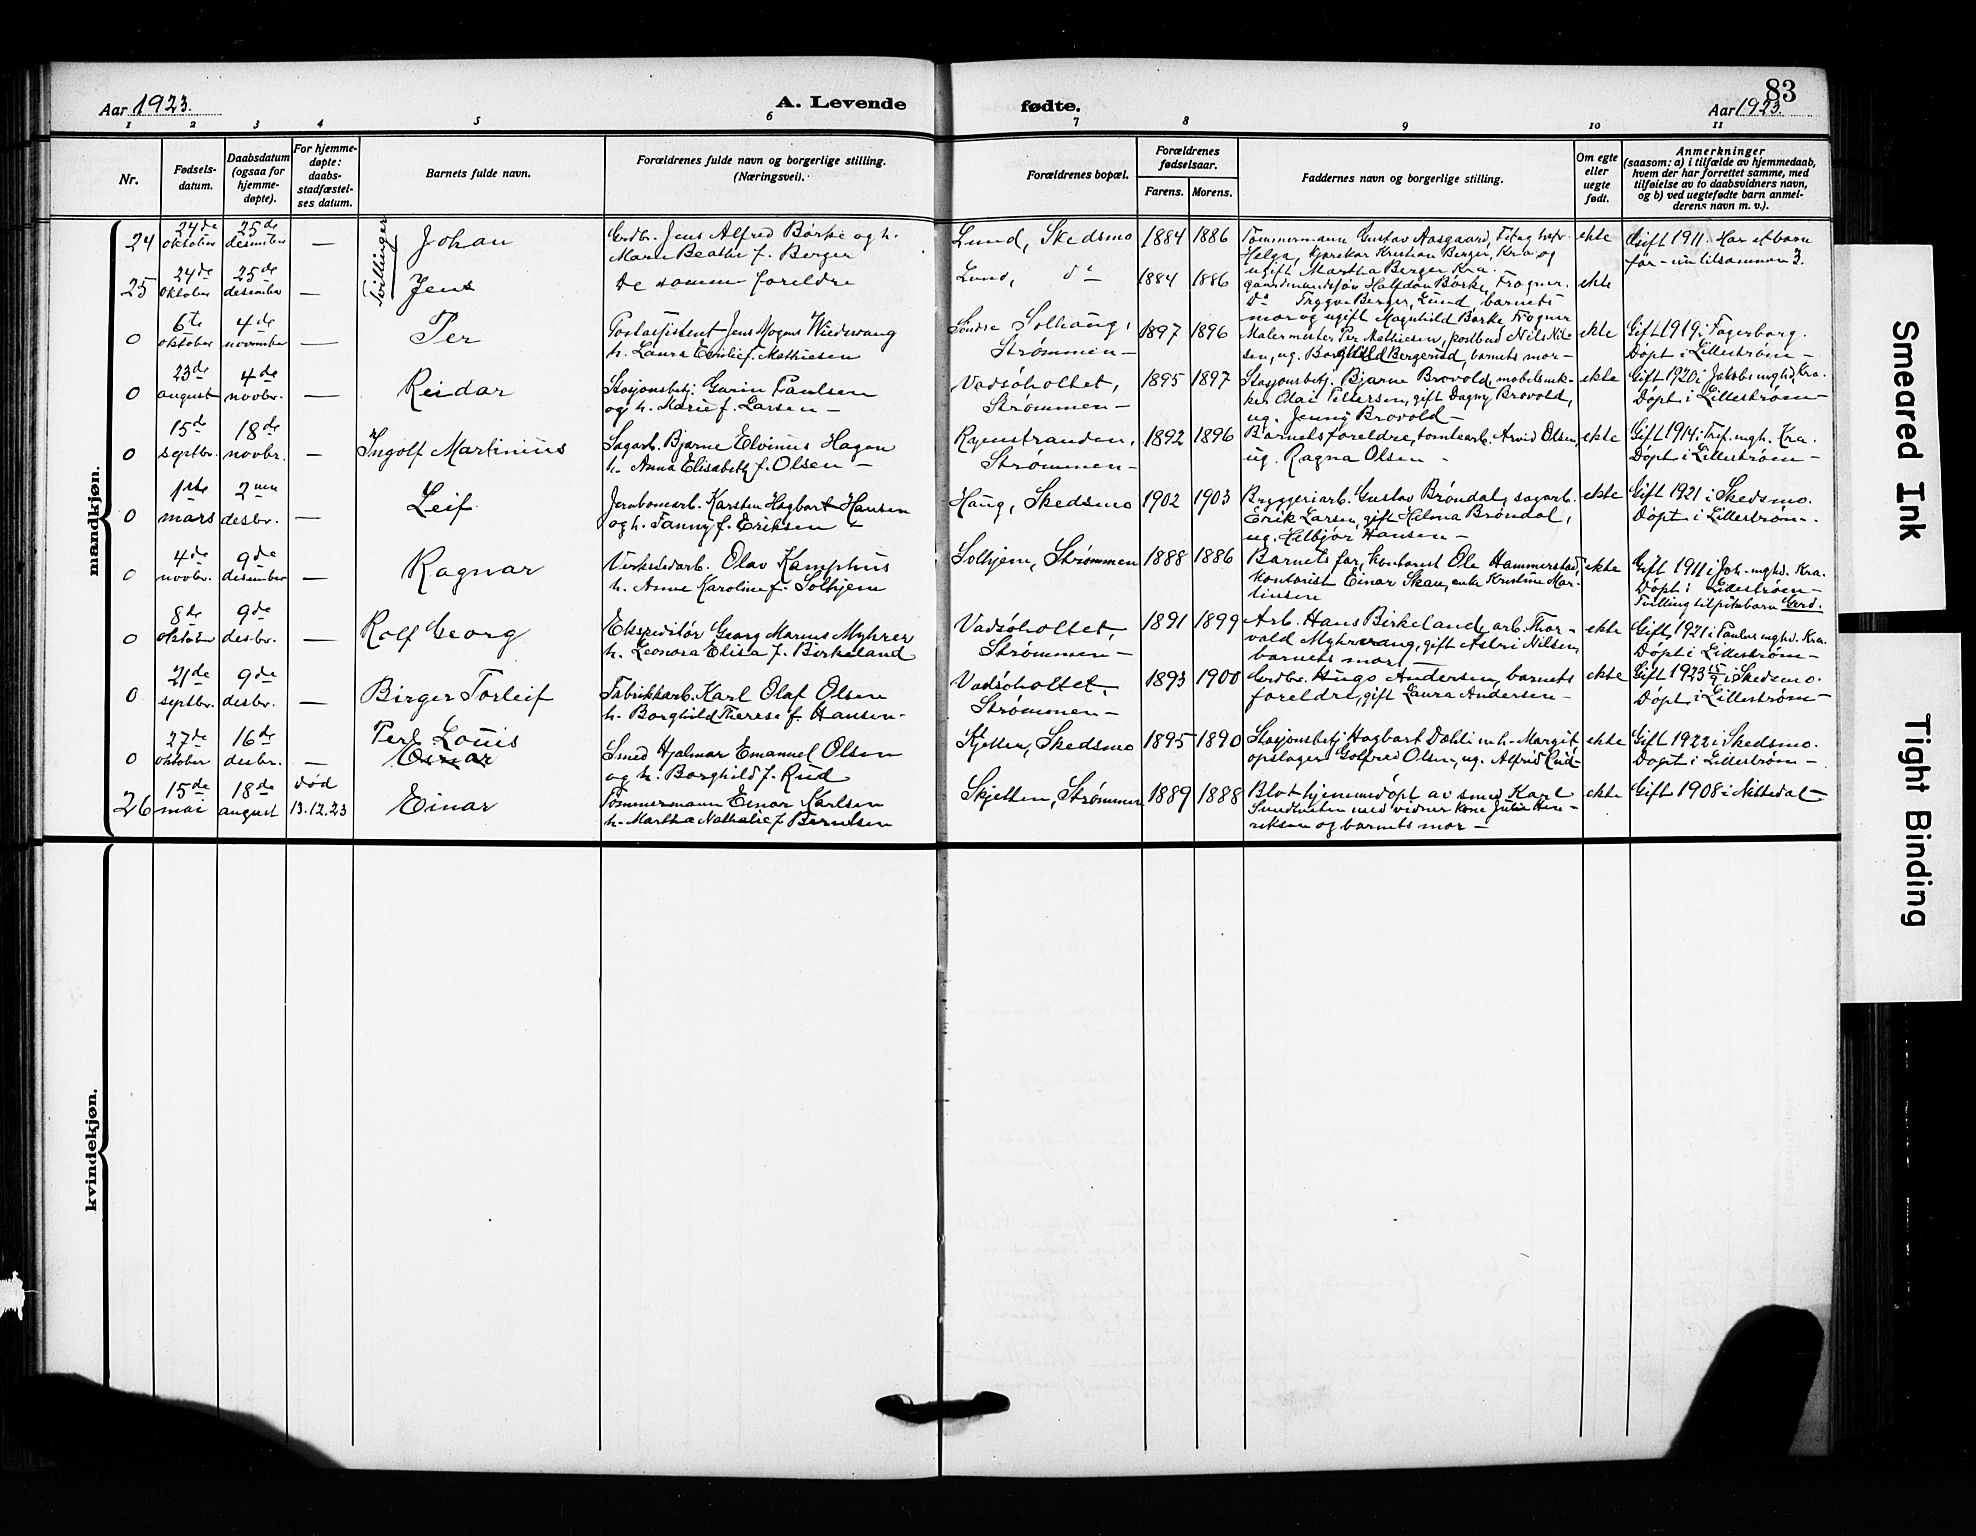 83
Aar 1923.
A. Levende
fødte.
Aar 1923.
1 2 3 4 5 6 7 8 9 10 11
Nr.
Fødsels-
datum.
Daabsdatum
(ogsaa for
hjemme-
døpte).
For hjemme-
døpte:
daabs-
stadfæstel-
ses datum.
Barnets fulde navn.
Forældrenes fulde navn og borgerlige stilling.
(Næringsvei).
Forældrenes bopæl.
Forældrenes
fødselsaar.
Farens. Morens.
Faddernes navn og borgerlige stilling.
Om egte
eller
uegte
født.
Anmerkninger
(saasom: a) i tilfælde av hjemmedaab,
hvem der har forrettet samme, med
tilføielse av to daabsvidners navn,
og b) ved uegtefødte barn anmel-
derens navn m. v.).
mandkjøn.
Tvillinger
24
24de
oktober
25de
desember
—
Johan
Grdbr. Jens Alfred Børke og h.
Marie Beathe f. Berger
Lund, Skedsmo
1884 1886
Tømmermann Gustav Aasgaard,
Helga, kjørekar Kristian Berger, Kra og
ugift Martha Berger Kra.
ekte
Gift 1911. Har et barn
før – tilsammen 3.
25
24de
oktober
25de
desember
—
Jens
De samme foreldre
Lund, do
1884 1886
gaardmandssøn Halfdan Børke, Frogner.
do Trygve Berger, Lund, barnets
mor og ugift Magnhild Børke Frogner
ekte
0
6te
oktober
4de
november
—
Per
Postassistent Jens Mogens Wiedswang
h. Laura Emilie f. Mathiesen
Søndre Solhaug,
Strømmen –
1897 1896
Malermester Per Mathiesen, postbud Nils Nil-
sen, ug. Borghild Bergerud, barnets mor –
ekte
Gift 1919 i Fagerborg.
Døpt i Lillestrøm –
0
23de
august
4de
novbr.
—
Reidar
Stasjonsbetj. Gurin Paulsen
og h. Marie f. Larsen –
Vadsøholtet,
Strømmen –
1895 1897
Stasjonsbetj. Bjarne Brovold, møbelsnik-
ker Olai Pettersen, gift Dagny Brovold,
ug. Jenny Brovold –
ekte
Gift 1920 i Jakobs mghd. Kra.
Døpt i Lillestrøm –
0
15de
septbr.
18de
novbr.
—
Ingolf Martinius
Sagarb. Bjarne Elvinus Hagen
h. Anna Elisabeth f. Olsen –
Ryenstranden,
Strømmen –
1892 1896
Barnets foreldre, tomtearb. Arvid Olsen,
ug. Ragna Olsen –
ekte
Gift 1914 i Tref. mgh. Kra.
Døpt i Lillestrøm –
0
1ste
mars
2nen
desbr.
—
Leif
Jernbanearb. Karsten Hagbart Hansen
og h. Fanny f. Eriksen –
Haug, Skedsmo
1902 1903
Bryggeriarb. Gustav Brøndal, sagarb.
Erik Larsen, gift Helma Brøndal,
ug. Helbjør Hansen –
ekte
Gift 1921 i Skedsmo.
Døpt i Lillestrøm –
0
4de
novbr.
9de
desember
—
Ragnar
Verkstedarb. Olav Kamphus
h. Anne Karoline f. Solhjem
Solhjem, Strømmen
1888 1886
Barnets far, kontorist Ole Hammerstad,
kontorist Einar Skau, enke Kristine Mar-
tinsen
ekte
Gift 1911 i Joh. mghd. Kra.
Døpt i Lillestrøm –
Tvilling til pikebarn Gerd.
0
8de
oktober
9de
desbr.
—
Rolf Georg
Ekspeditør Georg Marius Myhrer
h. Leonora Elisa f. Birkeland
Vadsøholtet,
Strømmen –
1891 1899
Arb. Hans Birkeland, arb. Thor-
vald Myhrvang, gift Astri Nilsen,
barnets mor –
ekte
Gift 1921 i Paulus mghd. Kra.
Døpt i Lillestrøm –
0
21de
septbr.
9de
desbr.
Birger Torleif
Fabrikkarb. Karl Olaf Olsen
h. Borghild Therese f. Hansen.
Vadsøholtet.
Strømmen –
1893 1900
Grdbr. Hugo Andersen, barnets
foreldre, gift Laura Andersen –
ekte
Gift 1923 15/7 i Skedsmo.
Døpt i Lillestrøm –
0
27de
oktober
16de
desbr.
—
Per Louis
Einar
Smed Hjalmar Emanuel Olsen
og h. Borghild f. Rud
Kjeller, Skedsmo
1895 1890
Stasjonsbetj. Hagbart Dæhli m. h. Margit
opslager Golfred Olsen, ug. Alfred Rud –
ekte
Gift 1922 i Skedsmo.
Døpt i Lillestrøm –
26
15de
mai
18de
august
død
13.12.23
Einar
Tømmermann Einar Karlsen
h. Martha Nathalie f. Berntsen
Skjetten, Strømmen
1889 1888
Blot hjemmedøpt av smed Karl
Sundheten med vidner kone Julia Hen-
riksen og barnets mor –
ekte
Gift 1908 i Nittedal –
kvindekjøn.
Smeared Ink
Tight Binding